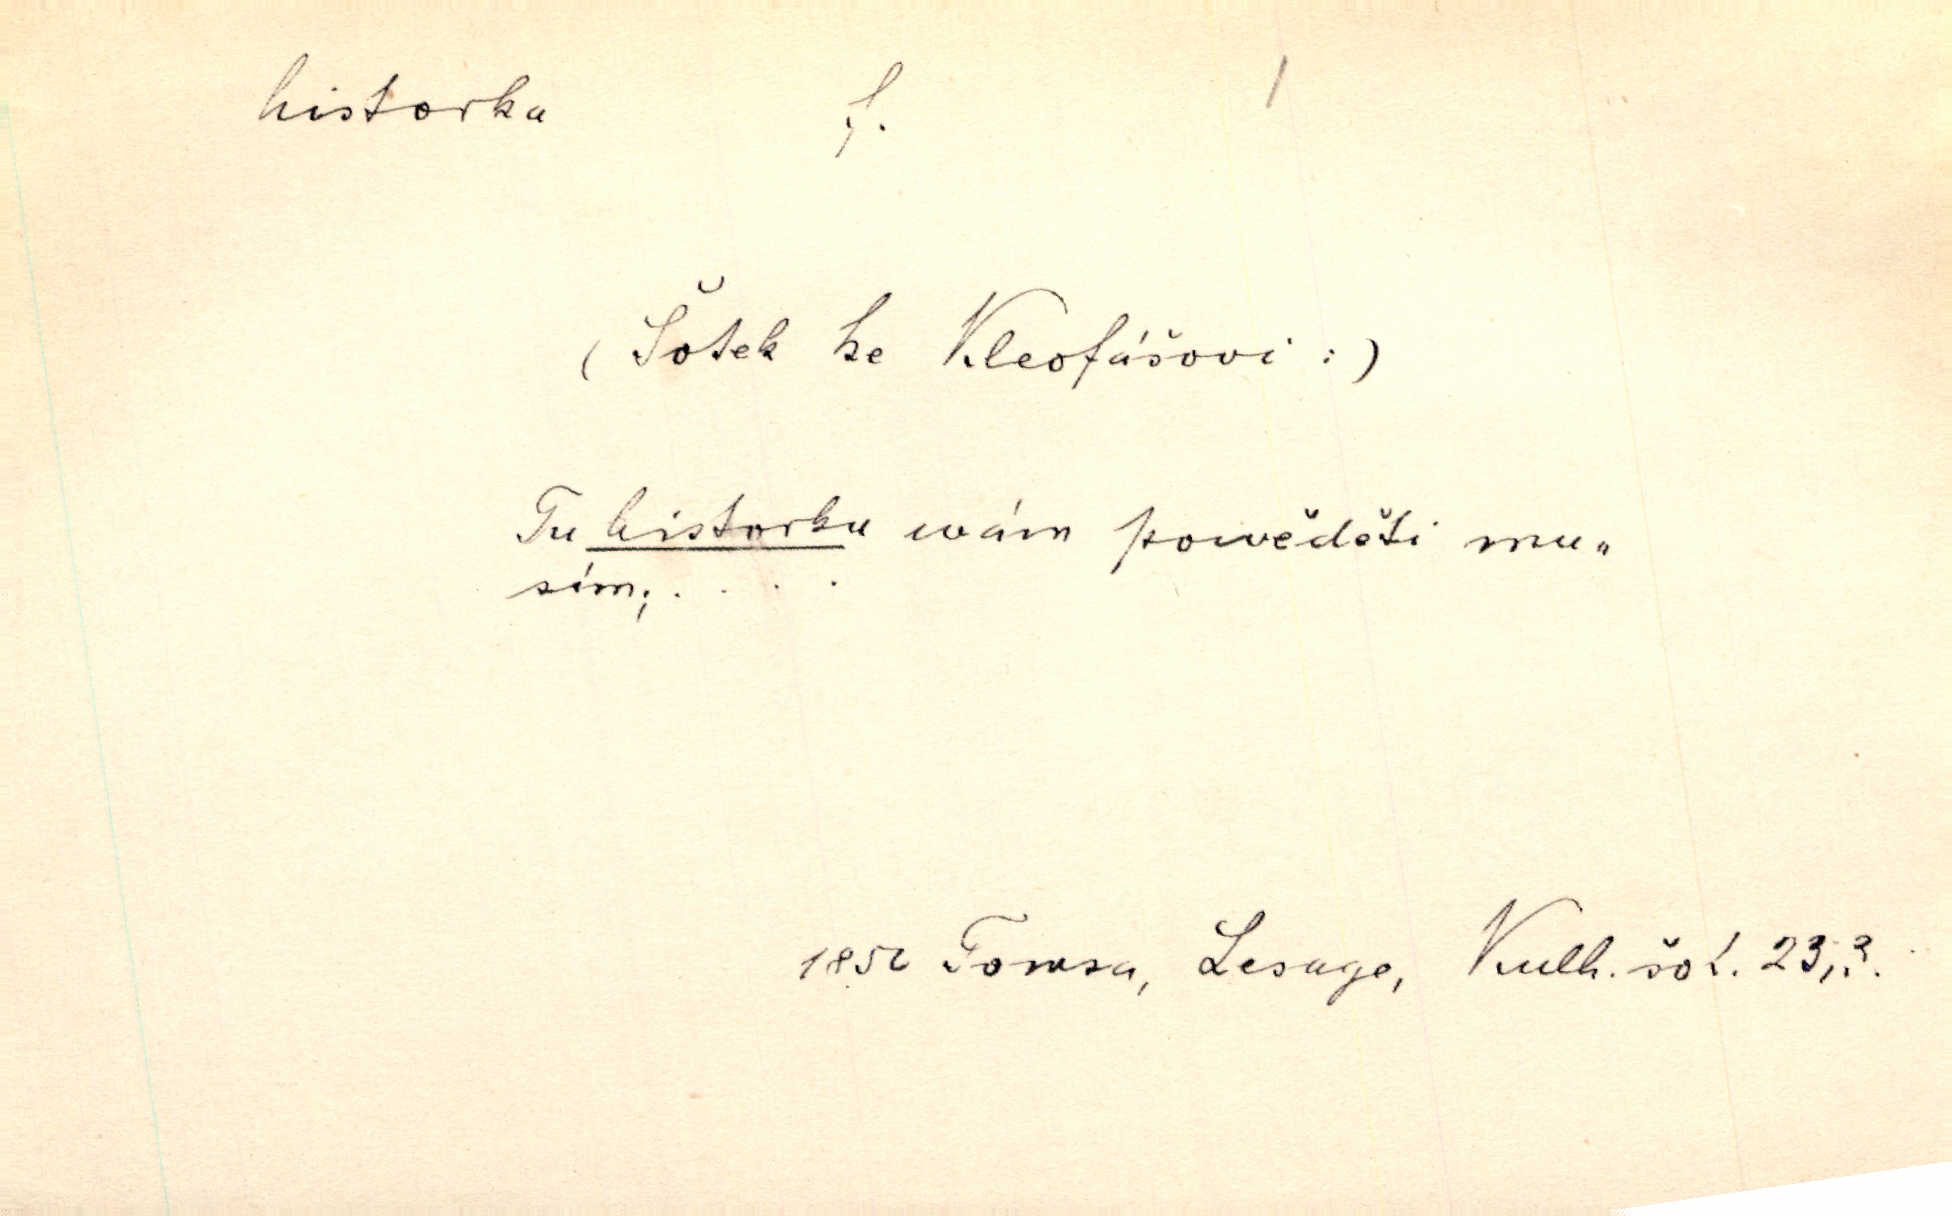 historka f. /
(Šotek ke Kleofášovi:)
Tu historku wám powěděti mu„
sím; . . . .
1852 Tomsa, Lesage, Kulh. šot. 23,3.